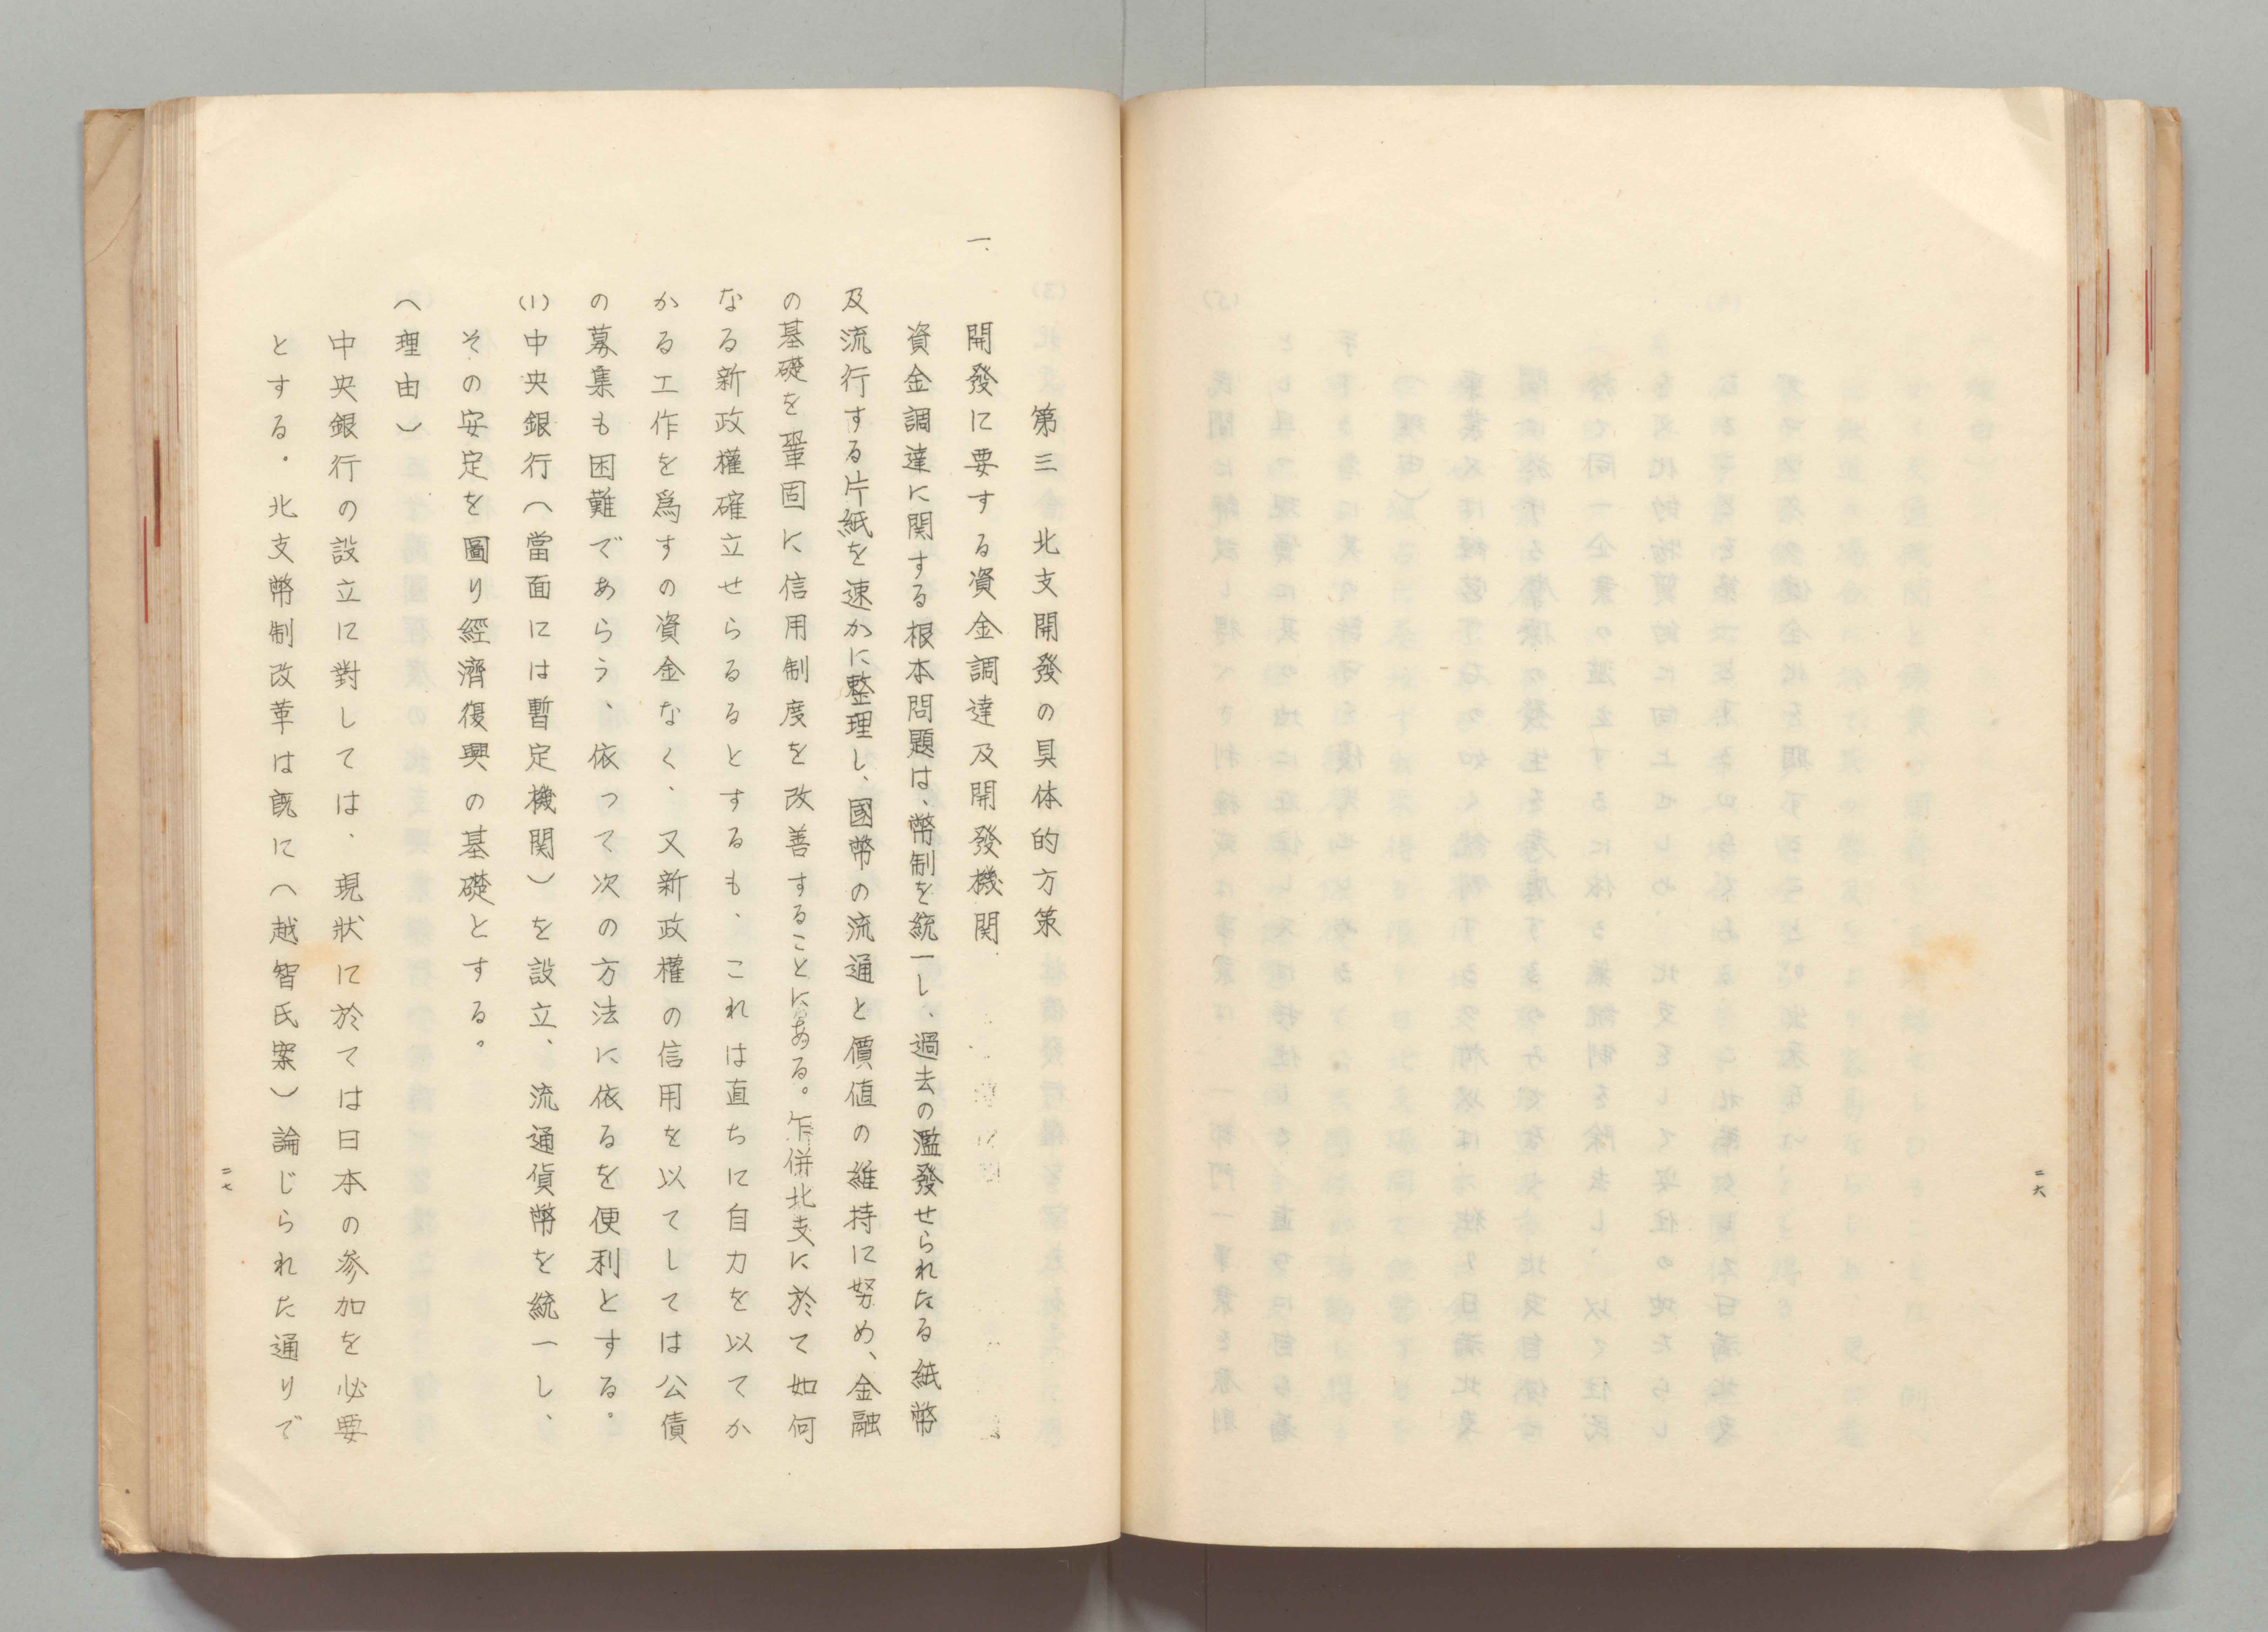 二六
第三 北支開發の具体的方策
一、開發に要する資金調達及開發機関
資金調達に関する根本問題は、幣制を統一し、過去の濫發せられたる紙幣
及流行する片紙を速かに整理し、國幣の流通と價値の維持に努め、金融
の基礎を鞏固に信用制度を改善することにある。乍併北支に於て如何
なる新政權確立せらるるとするも、これは直ちに自力を以てか
かる工作を爲すの資金なく、又新政權の信用を以てしては公債
の募集も困難であらう、依って次の方法に依るを便利とする。
(1)中央銀行(當面には暫定機関)を設立、流通貨幣を統一し、
その安定を圖り經濟復興の基礎とする。
(理由)
中央銀行の設立に對しては、現狀に於ては日本の参加を必要
とする。北支幣制改革は既に(越智氏案)論じられた通りで
二七